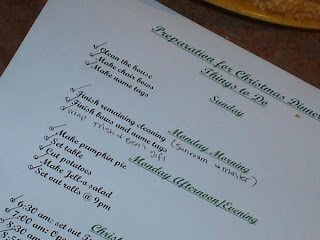 Preparation for Christmas Dinner
Things to Do
Sunday
Clean the house
Make chair bows
Make name tags
Monday Morning
Finish remaining cleaning (Sunroom + master)
Finish bows and name tags
wrap Trish & Ben's gift
Monday Afternoon/Evening
Make pumpkin pie
Set table
Cut potatoes
Make Jell-o salad
Set out rolls @ 9pm
6:30 am: set out
7:00 am: